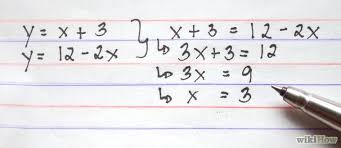 y = x + 3 } x + 3 = 12 - 2x
y = 12 - 2x ↳ 3x + 3 = 12
↳ 3x = 9
↳ x = 3
wikiHow